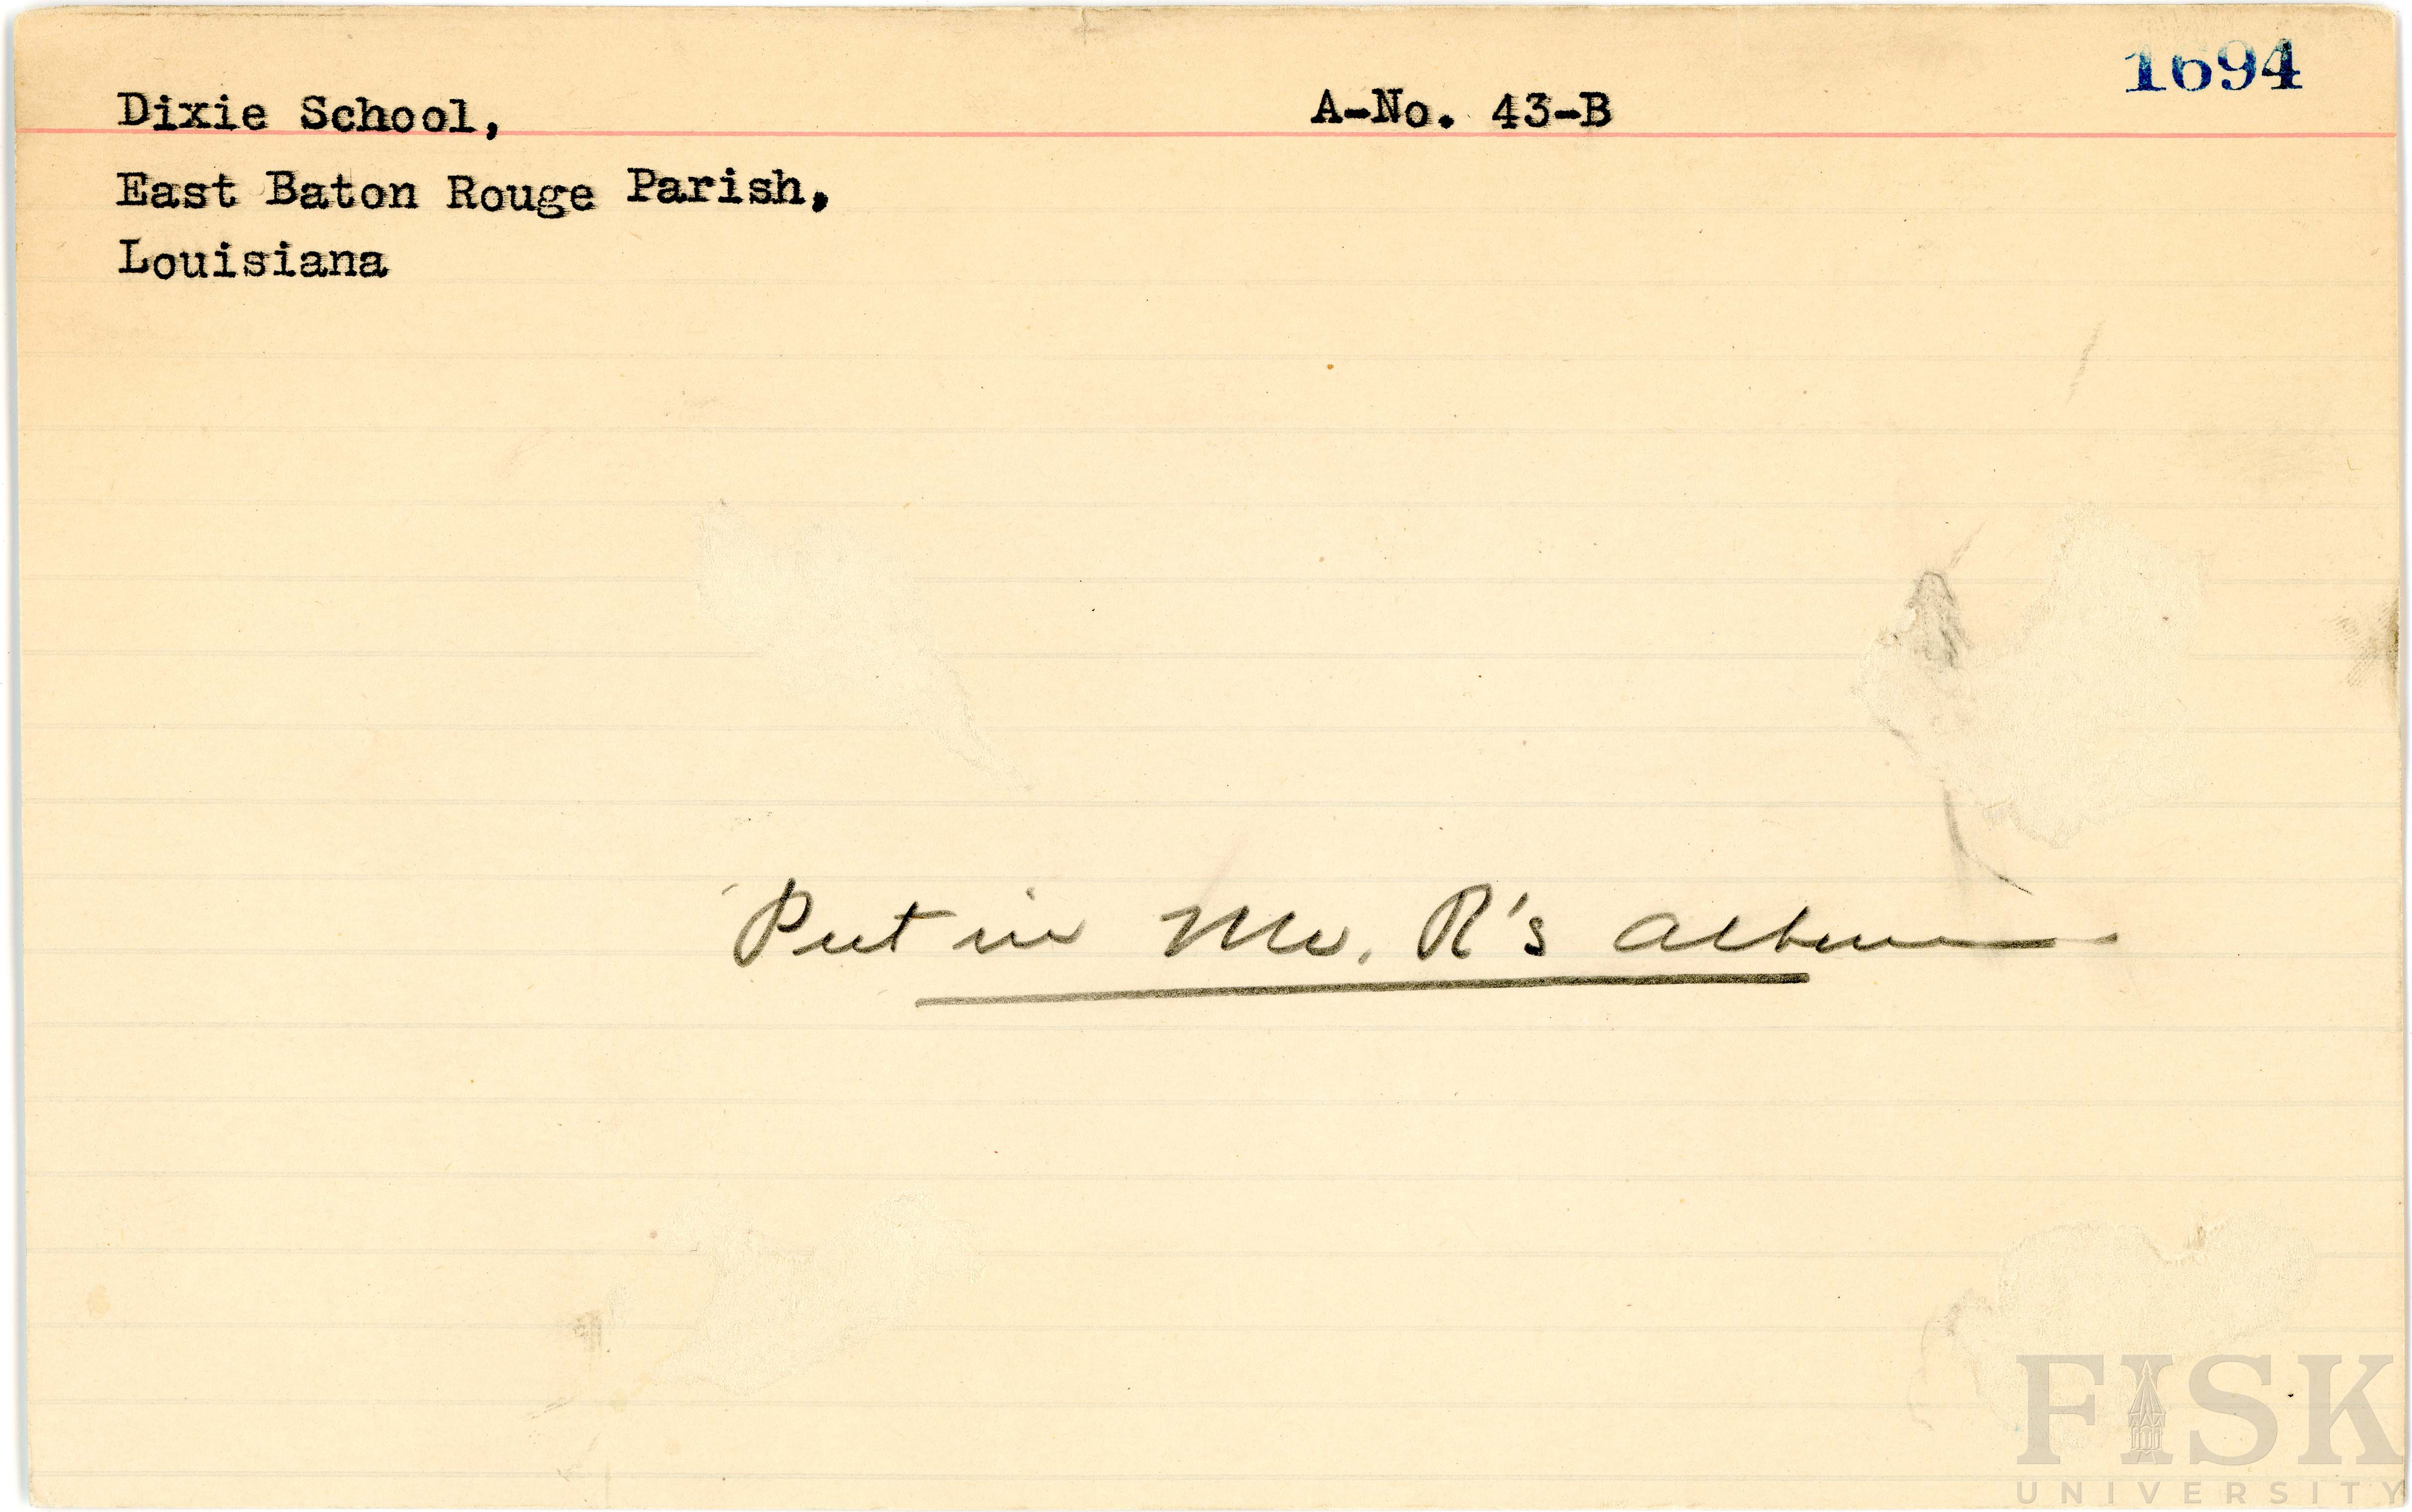 1694
Dixie School, A-No. 43-B
East Baton Rouge Parish,
Louisiana
Put in Mr. R's album
FISK
UNIVERSITY